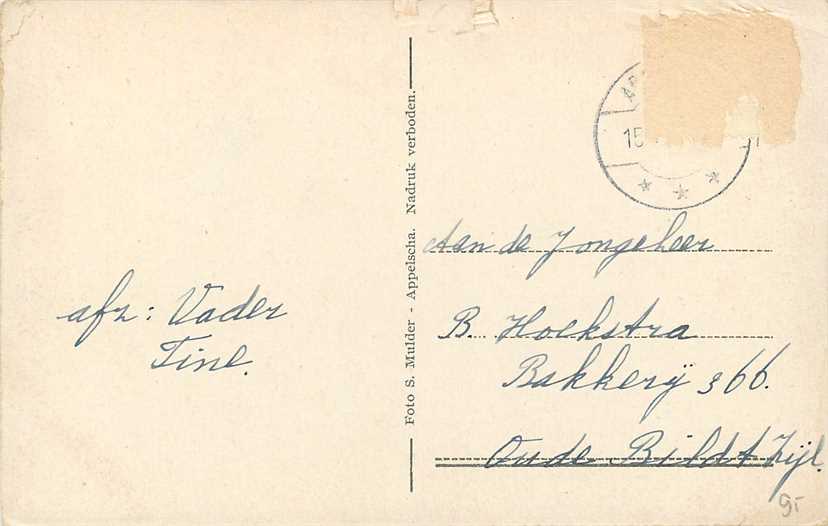 afz: Vader
Tine.
Foto S. Mulder - Appelscha. Nadruk verboden.
15
Aan de Jongeheer
B. Hoekstra
Bakkerij 366.
Oude Bildt Zijl.